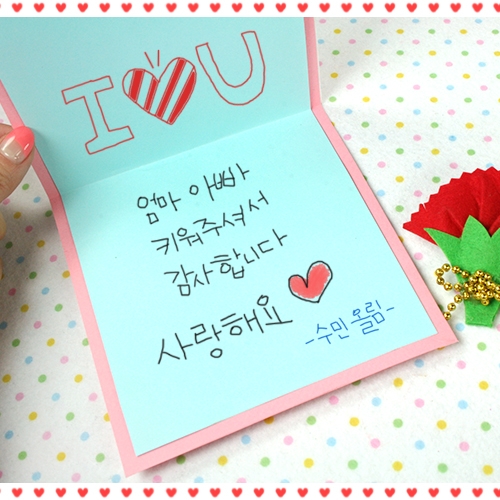 I ♥ U
엄마 아빠
키워주셔서
감사합니다
사랑해요 ♥
-수민 올림-